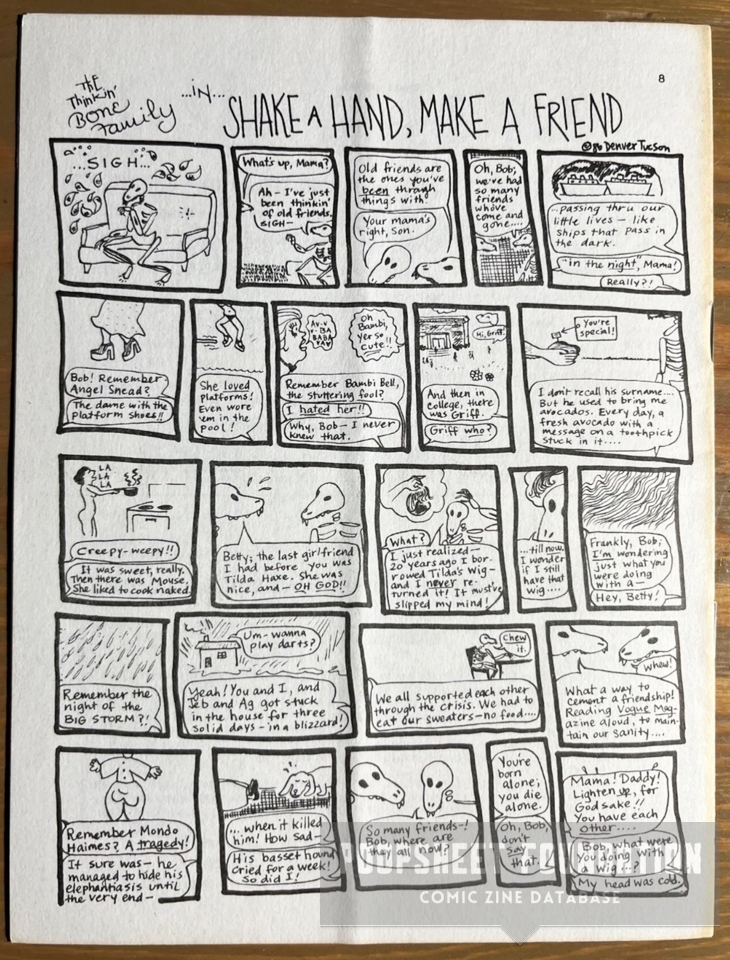 8
The
Thinkin'
Bone
Family
...IN...
SHAKE A HAND, MAKE A FRIEND
Denver Tucson
...SIGH...
What's up, Mama?
Ah - I've just
been thinkin'
of old friends,
SIGH -
Old friends are
the ones you've
been through
things with.
Your mama's
right, Son.
Oh, Bob;
we've had
so many
friends
whove
come and
gone....
...passing thru our
little lives - like
ships that pass in
the dark.
"in the night", Mama!
Really?!
Bob! Remember
Angel Snead?
The dame with the
platform shoes!!
She loved
platforms!
Even wore
'em in the
pool!
Oh
Bambi,
Yer so
cute!!
Remember Bambi Bell,
the stuttering fool?
I hated her!!
Why, Bob - I never
knew that.
Hi, Griff!
And then in
college, there
was Griff.
Griff who?
You're
special!
I don't recall his surname....
But he used to bring me
avocados. Every day, a
fresh avocado with a
message on a toothpick
stuck in it....
LA
LA
LA
Creepy-weepy!!
It was sweet, really.
Then there was Mouse.
She liked to cook naked.
Betty; the last girlfriend
I had before you was
Tilda Haxe. She was
nice, and - OH GOD!!
What?
I just realized -
20 years ago I bor-
rowed Tilda's wig -
and I never re-
turned it! It must've
slipped my mind!
...till now.
I wonder
if I still
have that
wig....
Frankly, Bob;
I'm wondering
just what you
were doing
with a -
Hey, Betty!
Remember the
night of the
BIG STORM?!
Um - wanna
play darts?
Yeah! You and I, and
Jeb and Ag got stuck
in the house for three
solid days - in a blizzard!
Chew
it.
We all supported each other
through the crisis. We had to
eat our sweaters - no food....
Whew!
What a way to
cement a friendship!
Reading Vogue Mag-
azine aloud, to main-
tain our sanity....
Remember Mondo
Haimes? A tragedy!
It sure was - he
managed to hide his
elephantiasis until
the very end -
... when it killed
him! How sad -
His basset hound
cried for a week!
So did I!
So many friends -!
Bob, where are
they all now?
You're
born
alone;
you die
alone.
Oh, Bob,
don't
say
that.
Mama! Daddy!
Lighten up, for
God sake!!
You have each
other....
Bob, what were
you doing with
a wig?!
My head was cold.
SPOOPSHEET FOUNDATION
COMIC ZINE DATABASE